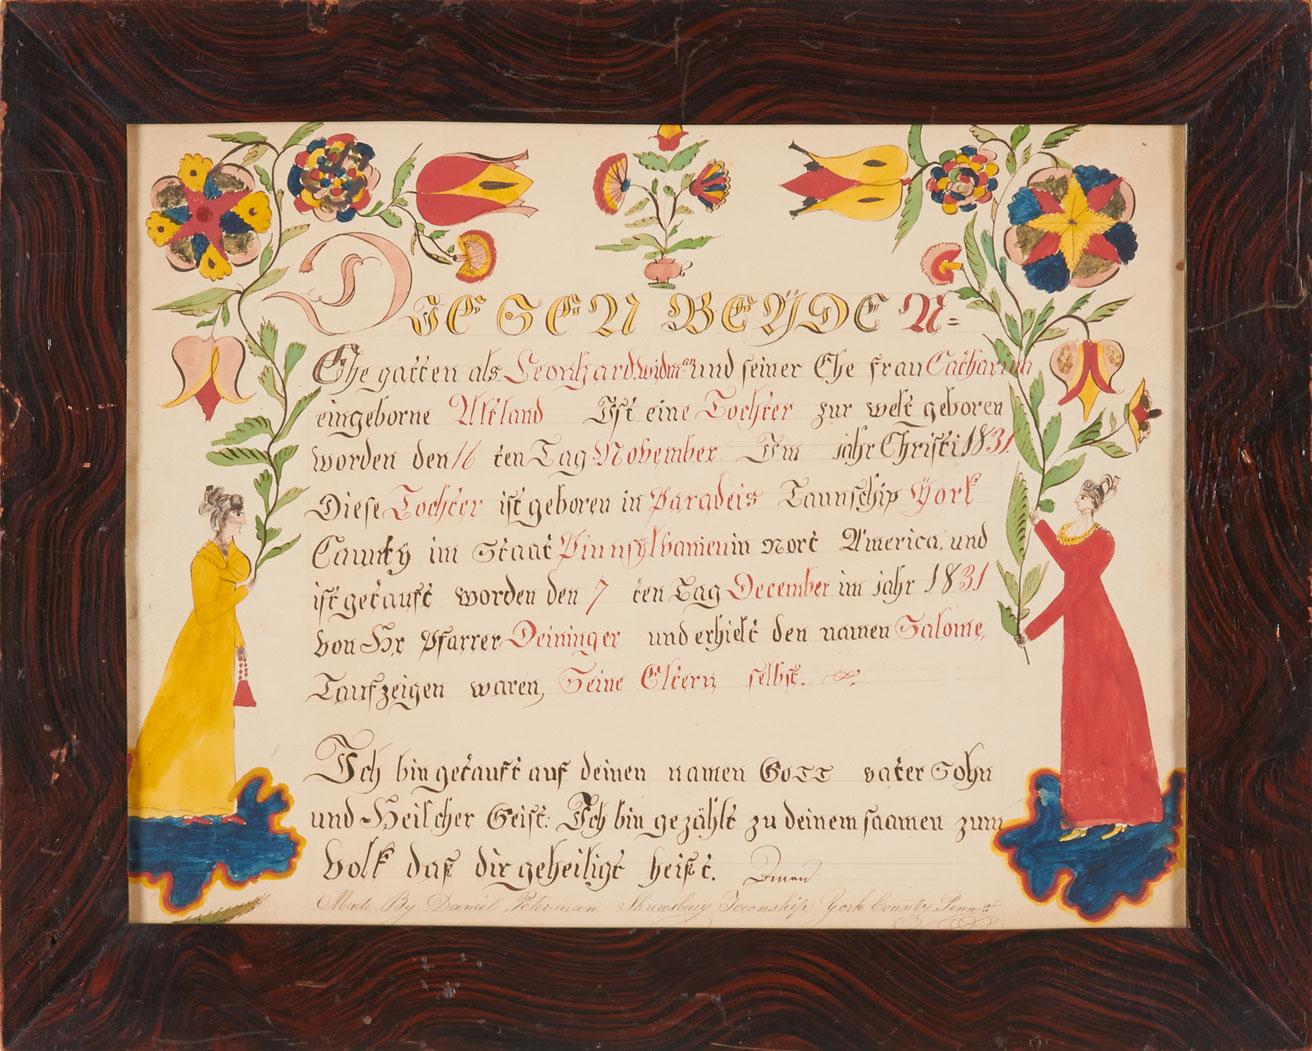 DIESEN BEYDEN=
Ehe gatten als Leonhard Widman und seiner Ehe frau Catharina
eingeborne Altland Ist eine Tochter zur welt geboren
worden den 16 ten Tag November Im jahr Christi 1831
Diese Tochter ist geboren in Paradeis Taunschip York
Caunty im Staat Pinnsylvanien in Nort America, und
ist getauft worden den 7 ten Tag December im jahr 1831
von Hr Pfarrer Deininger und erhielt den namen Salome,
Taufzeigen waren, Seine Eltern selbst.
Ich bin getauft auf deinen namen Gott vater Sohn
und Heilcher Geist: Ich bin gezählt zu deinem saamen zum
Volk das dir geheiligt heist. Amen
Made By Daniel Peterman Shrewsbury Township York County Penn<sup>a</sup>